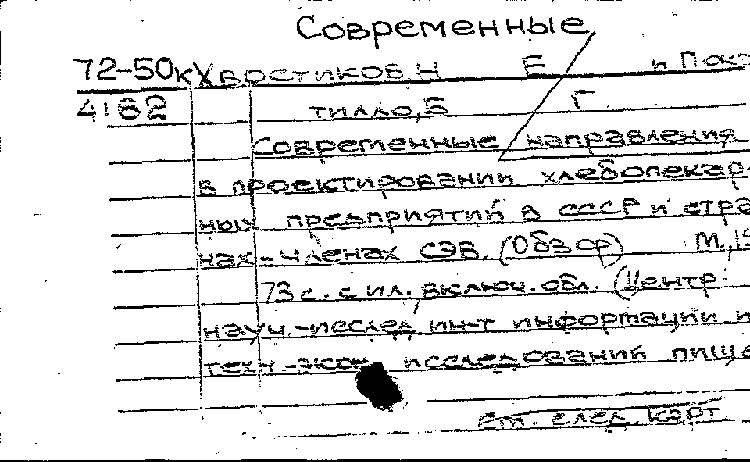 Современные
72-50к Хворостиков, Н Е и Пок
4182 тилло, Б Г
Современные направления
в проектировании хлебопекар-
ных предприятий в СССР и стра
нах-членах СЭВ. (Обзор) М., 19
73 с. с ил., включ. обл. (Центр.
науч.-исслед. ин-т информации и
техн.-экон. исследований пище
См. след. карт